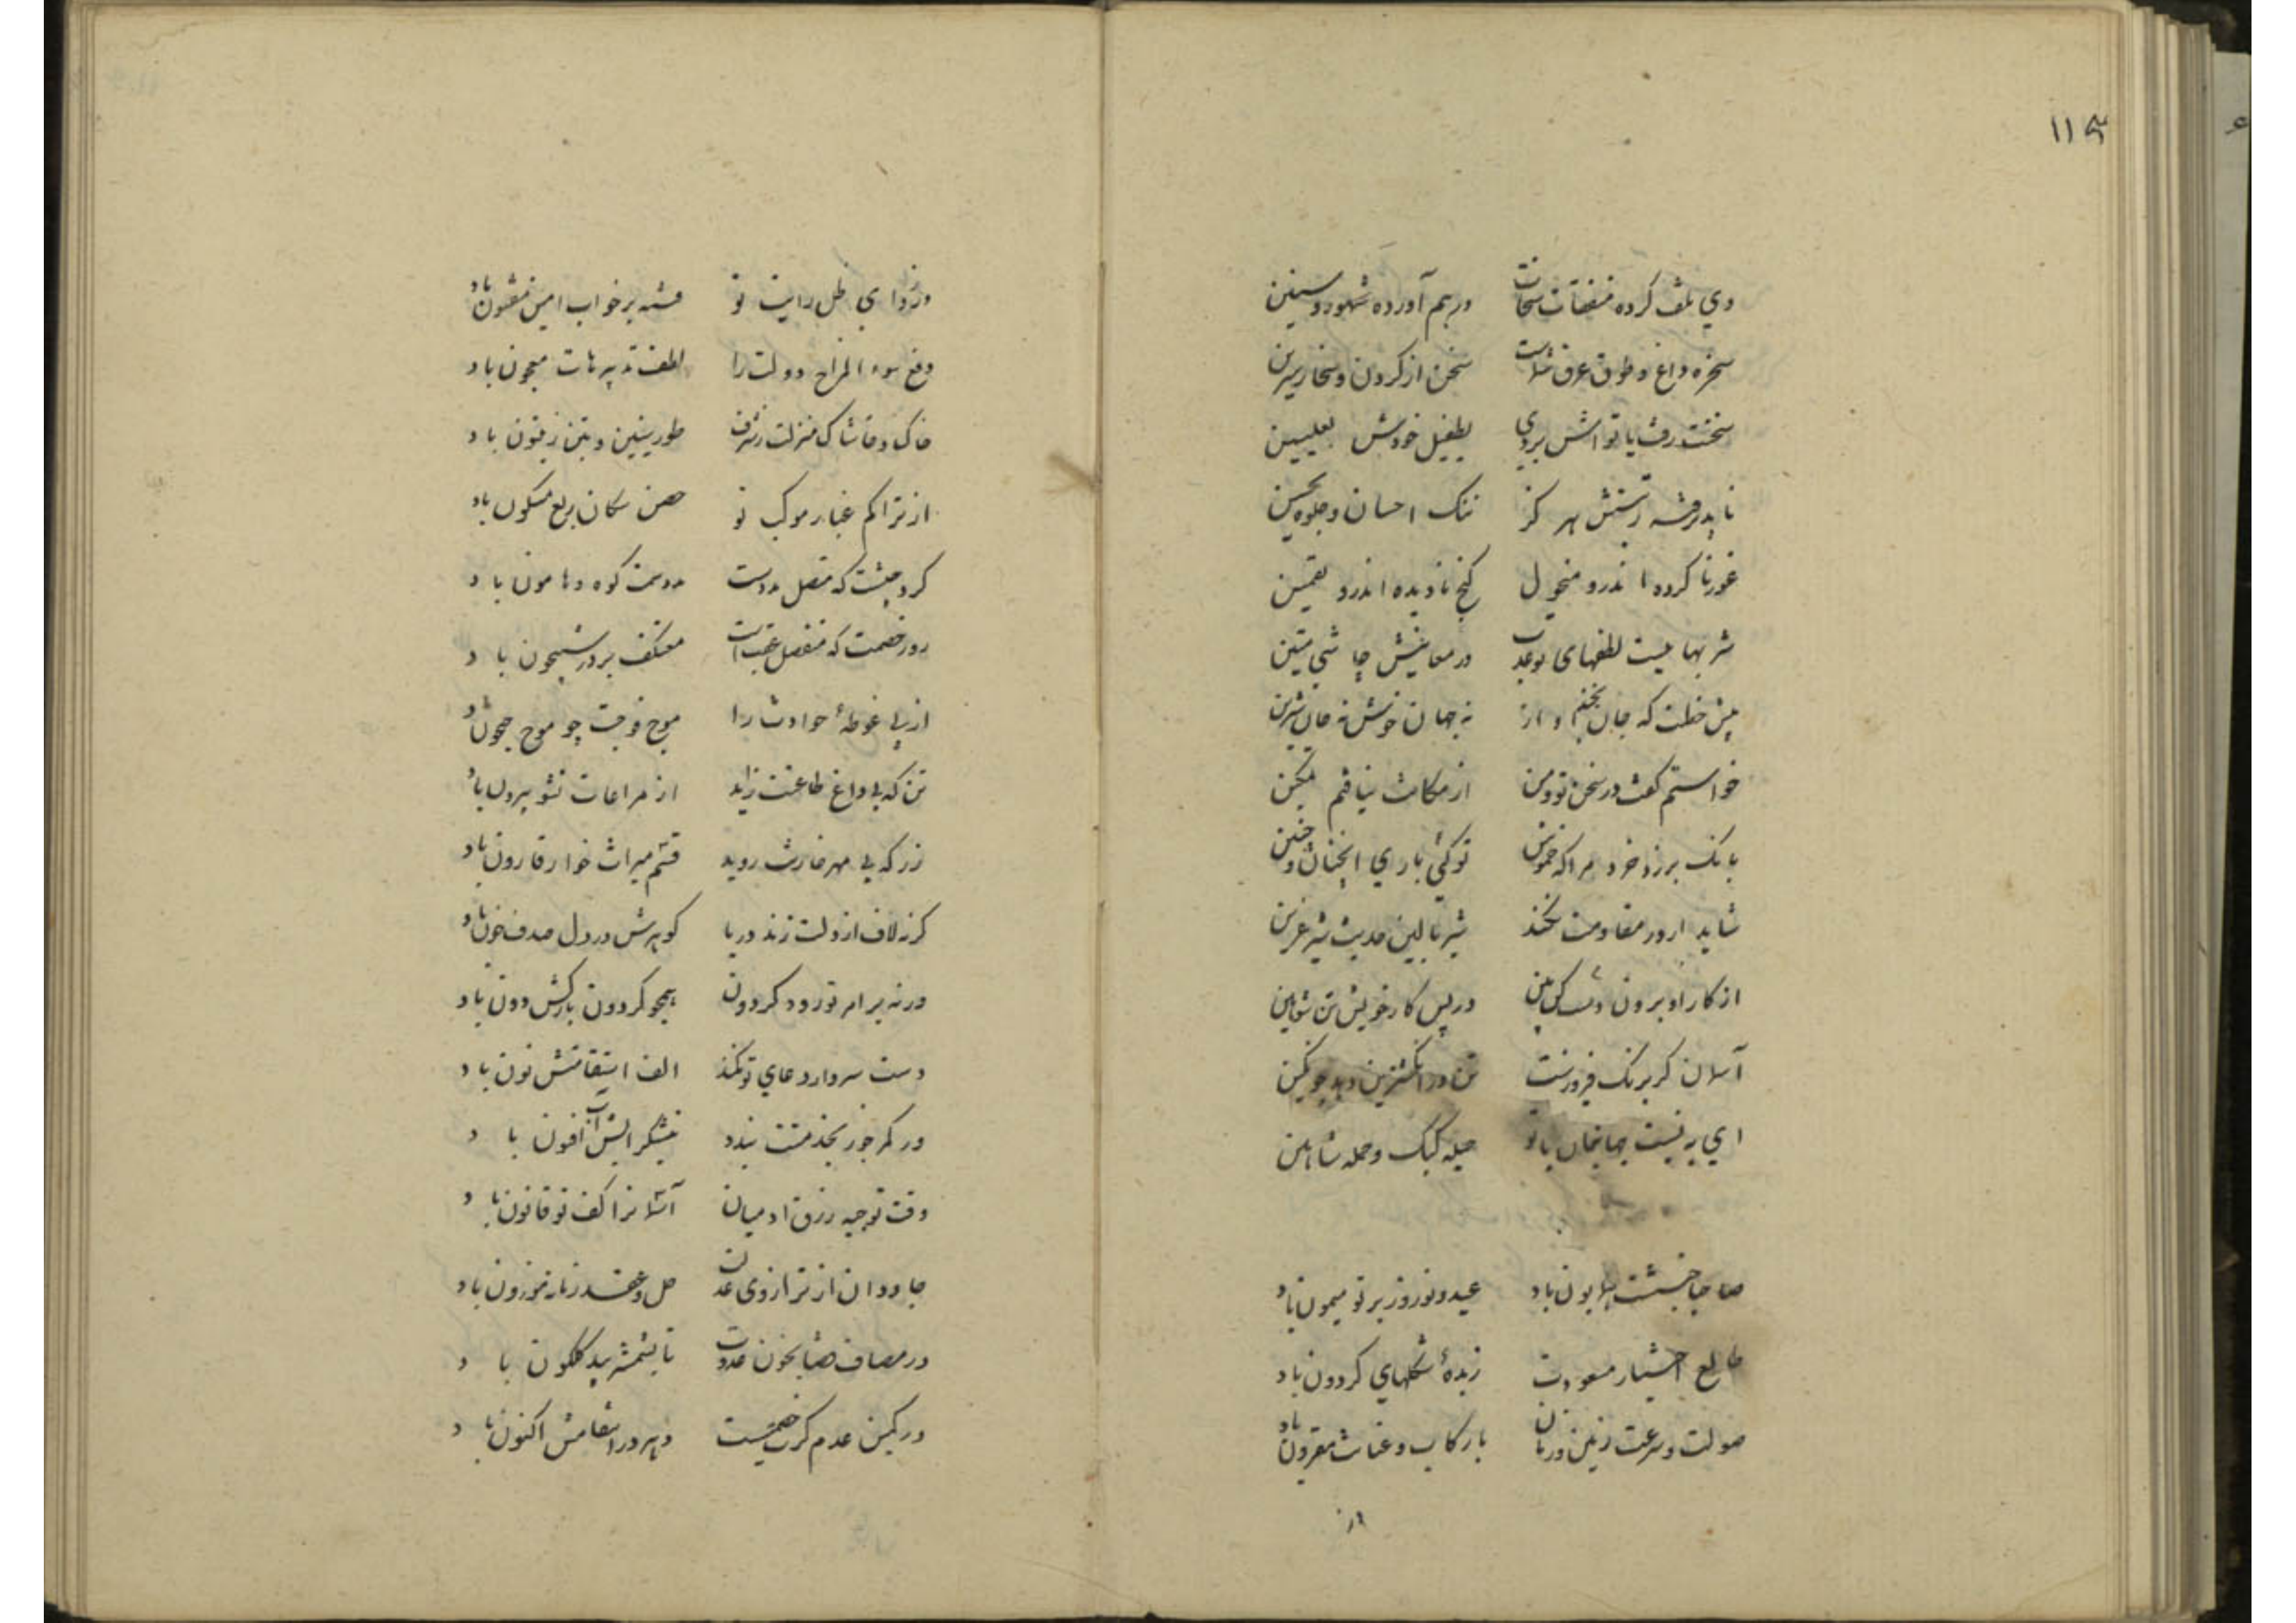 ۱۱۴
وي بلف کرده منفقات سخات درهم آورده شهور و سنین
سخره داغ و طوق عرق شماست سخن از گردون و سخا رسرین
سخنت رفت یا تواش بردی بطفیل خودش بعلیین
ننک احسان و جلوه تحسین
غور نا کرده اندرو منحول گنج نادیده اندرو تضمین
شربتهاییست لطفهای تو عذب در معانیش چاشنی متین
پیش خطت که جان بخشم و ارز نه جهان خوش نه جان شیرین
خواستم گفت در سخن تو و من از مکانت نیافتم تمکین
بانک برزد خرد مرا که خموش تو کئی باری اینچنان و چنین
شاید ار ور مقاومت نکند شیر بالین حدیث شیر عرین
از کار او برون در پس کار خویشتن بنشین
آسمان کر برنک فیروزست تن در انگشترین دهد چو نگین
ای به نیست جهانیان با تو حیله کبک و حمله شاهین
صاحبا جنبشت همایون باد عید و نوروز بر تو میمون باد
طالع اختیار مسعودت زبدهٔ شکلهاي کردون باد
صولت و سرعت زمین و زمان با رکاب و عنانت مقرون باد
در نواي ظل رایت تو فتنه بر خواب امن مفتون باد
دفع سوء المزاج دولت را لطف تدبیرهات معجون باد
خاک و خاشاک منزلت ز شرف طور سینین و تین زیتون باد
از تراکم غبار موکب تو حصن سکان ربع مسکون باد
کرد جیشت که متصل مددست مدد سمت کوه و هامون باد
روز خصمت که منفصل عقب است معتکف بر در شبیخون باد
از پی غوطهٔ حوادث را موج فوجت چو موج جیحون باد
تن که بی داغ طاعتت زاید از مراعات نشو بیرون باد
زر که بی مهر خازنت روید قسم میراث خوار قارون باد
کر نه لاف از دلت زند دریا گوهرش در دل صدف خون باد
ور نه بر امر تو رود کردون همچو کردون بارکش دون باد
دست سرو ار دعای تو نکند الف استقامتش نون باد
ور کمر جز بخدمتت بندد نیشکر را لبش آب افیون باد
وقت توجیه رزق آدمیان آسمانرا کف تو قانون باد
جاودان از ترازوی عدلت حل و عقد زمانه موزون باد
در مصاف قضا بخون عدوت تا بشمشیر بید کلکون باد
در کمین عدم کرت خصمیست دهر در انتقامش اکنون باد